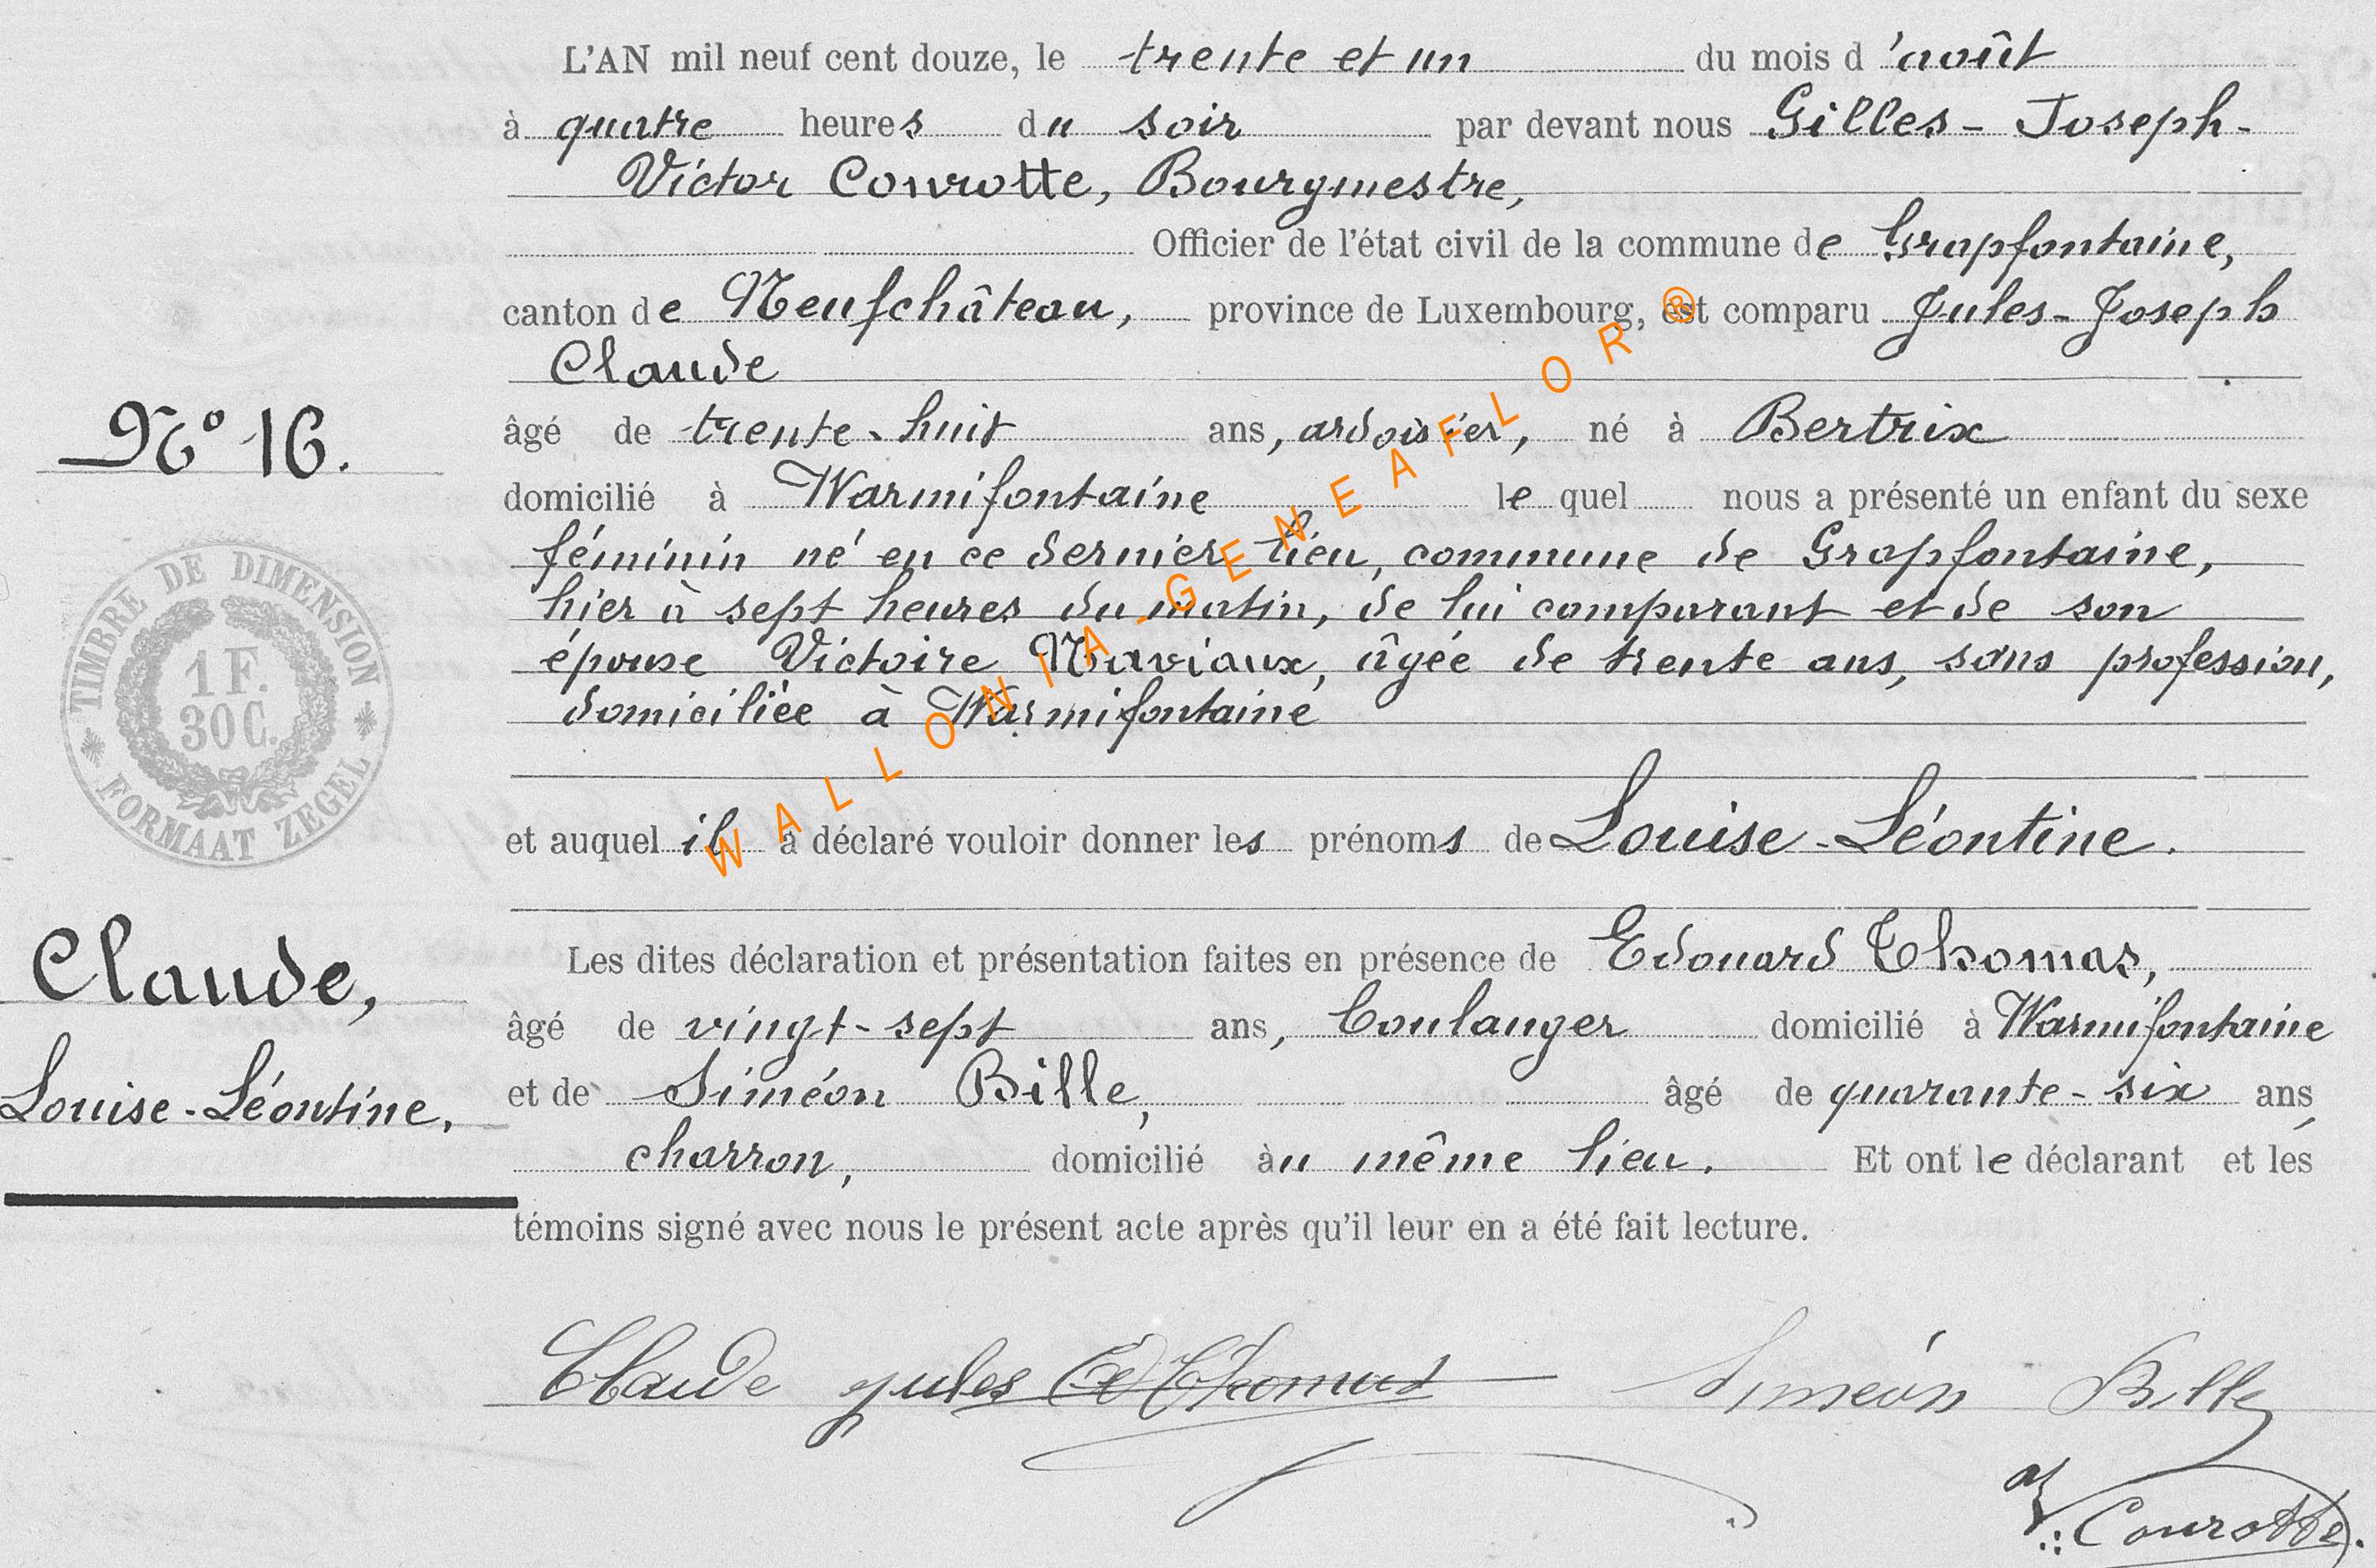 L'AN mil neuf cent douze, le trente et un du mois d'août
à quatre heures du soir par devant nous Gilles-Joseph-
Victor Conrotte, Bourgmestre,
Officier de l'état civil de la commune de Grapfontaine,
canton de Neufchâteau, province de Luxembourg, est comparu Jules-Joseph
Claude
âgé de trente-huit ans, ardoisier, né à Bertrix
domicilié à Warmifontaine le quel nous a présenté un enfant du sexe
féminin né en ce dernier lieu, commune de Grapfontaine,
hier à sept heures du matin, de lui comparant et de son
épouse Victoire Naviaux, âgée de trente ans, sans profession,
domiciliée à Warmifontaine
et auquel il a déclaré vouloir donner les prénoms de Louise-Léontine.
Les dites déclaration et présentation faites en présence de Edouard Thomas,
âgé de vingt-sept ans, boulanger domicilié à Warmifontaine
et de Siméon Bille, âgé de quarante-six ans,
charron, domicilié au même lieu. Et ont le déclarant et les
témoins signé avec nous le présent acte après qu'il leur en a été fait lecture.
Claude jules Ed Thomas Siméon Bille
Conrotte.
N° 16.
TIMBRE DE DIMENSION
1 F.
30 C.
FORMAAT ZEGEL
Claude,
Louise-Léontine,
WALLONIA-GENEAFLOR®